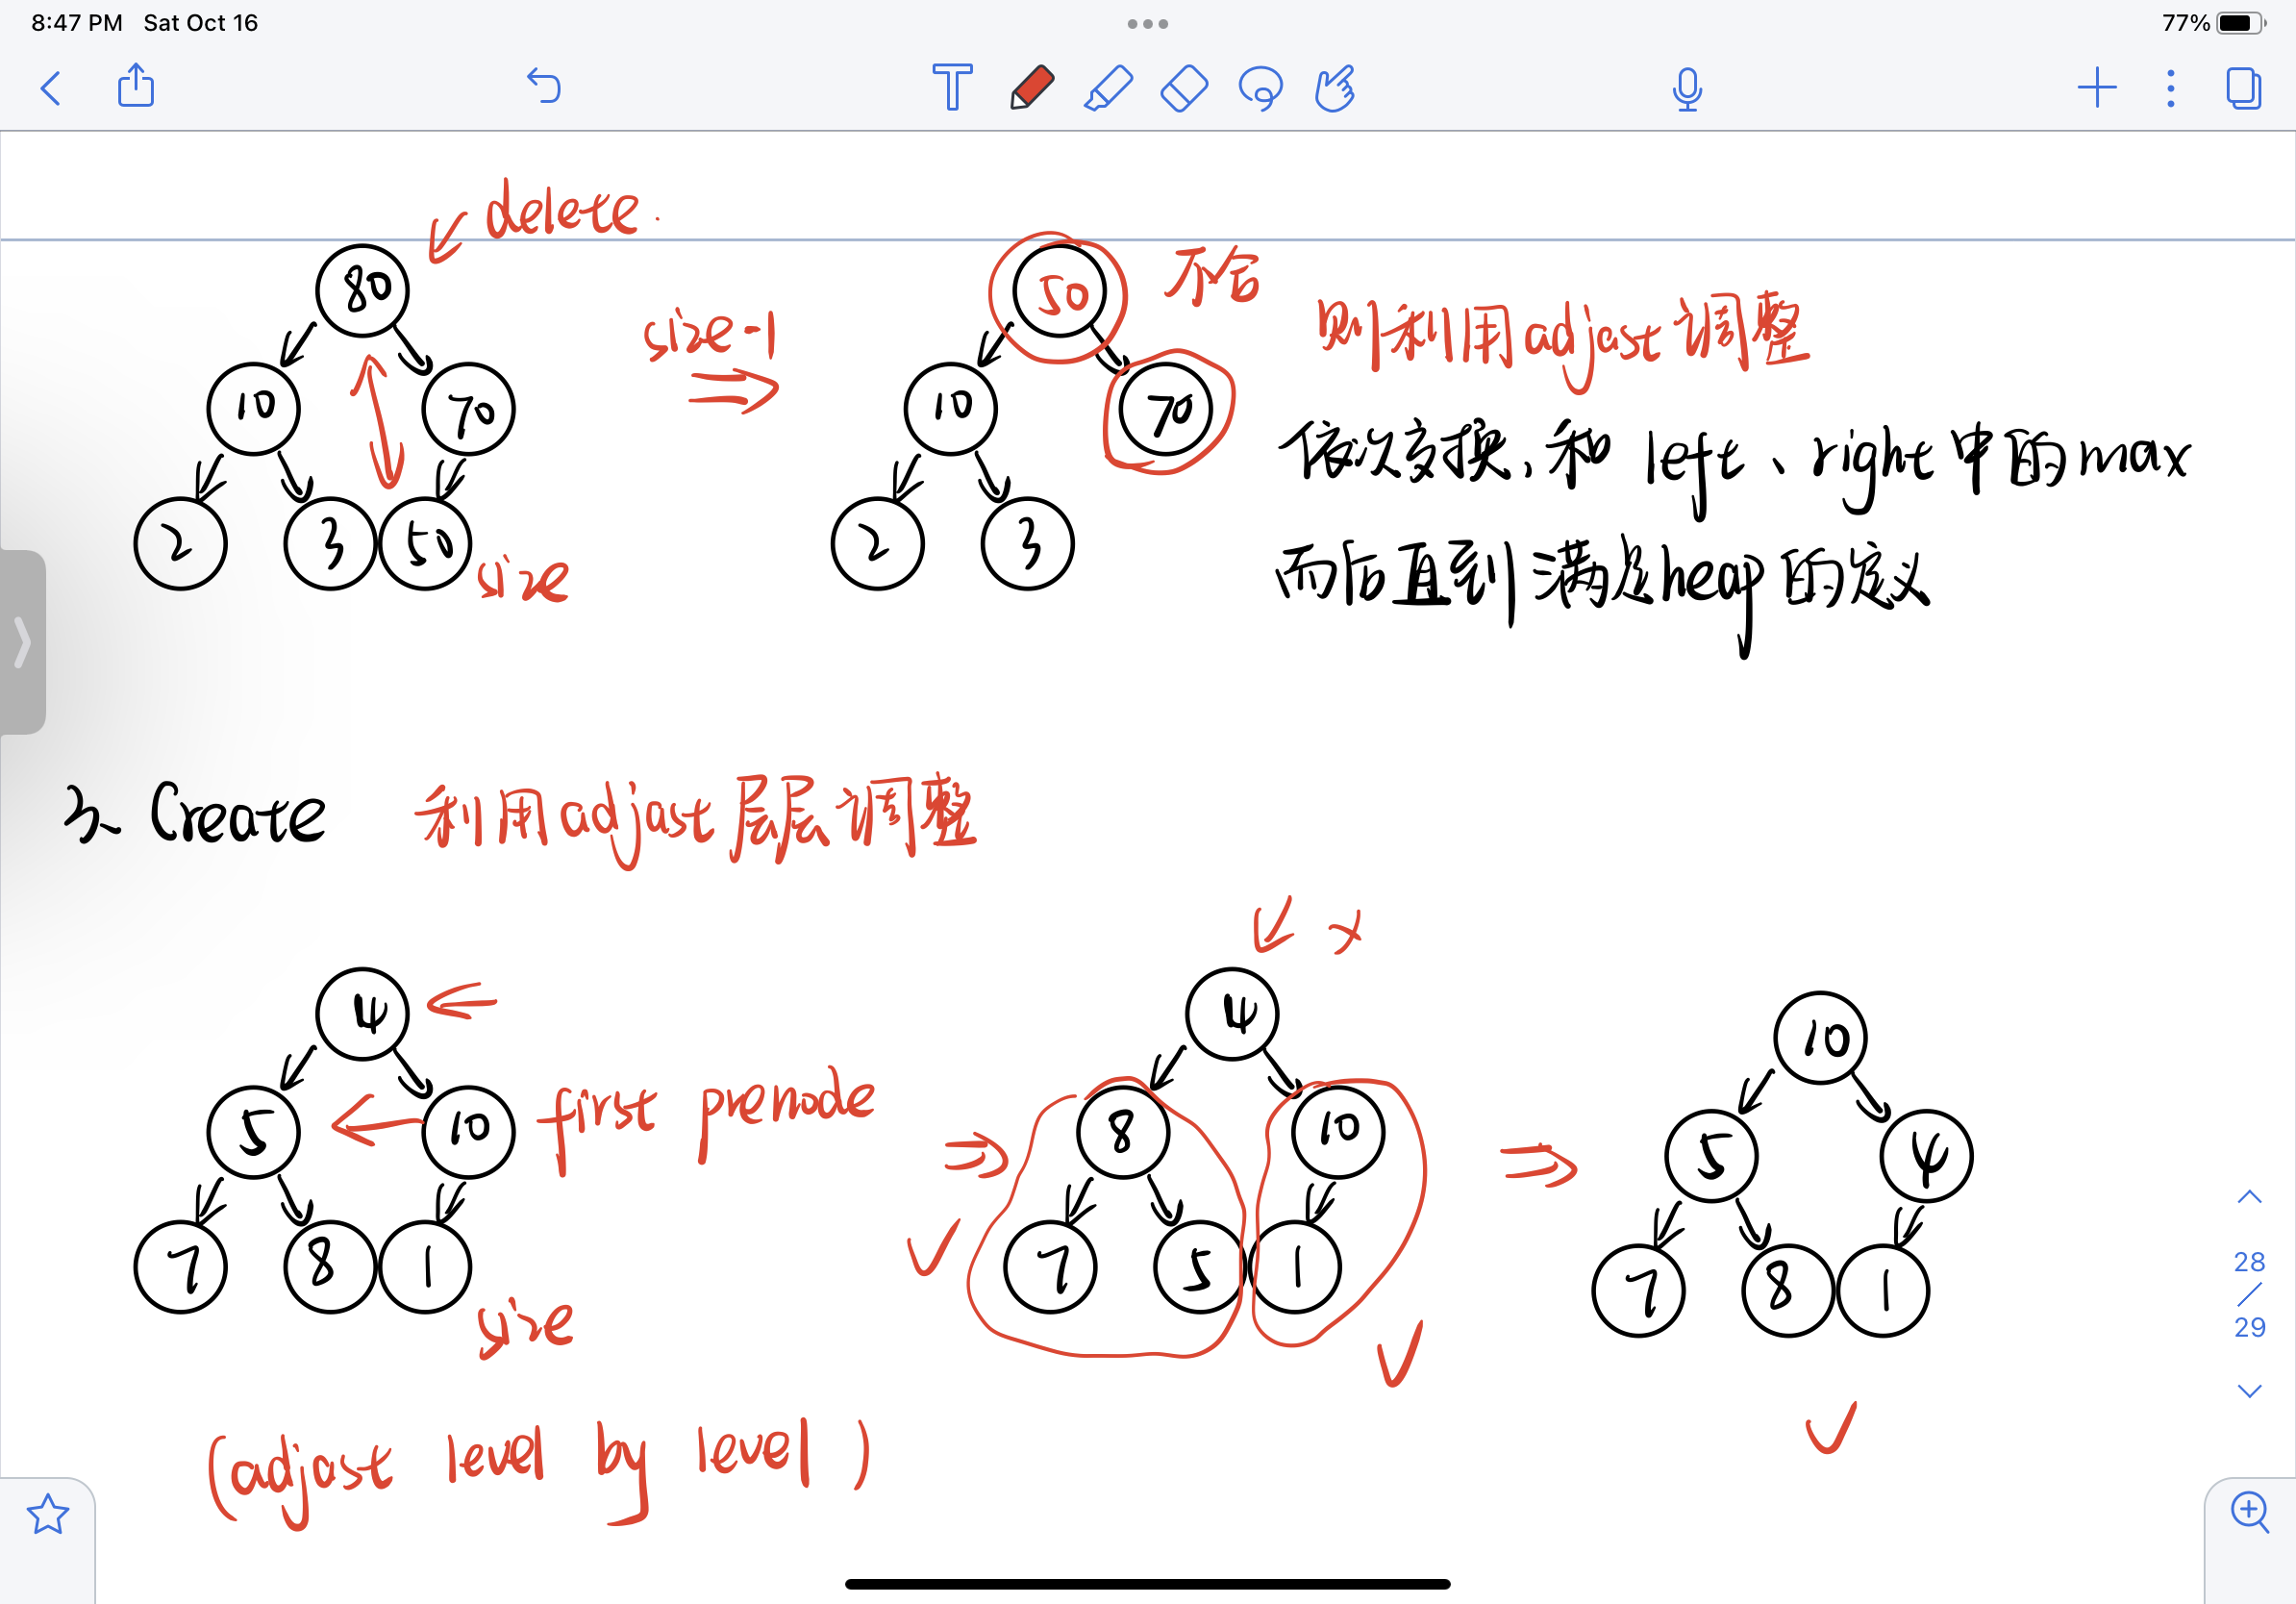 8:47 PM Sat Oct 16
77%
delete.
80
10 70
2 3 50
size
size-1
50
10 70
2 3
不合
则利用adjast调整
依次交换、和 left、right中的max
而后直到满足heap的定义
3、Create 利用adjast层层调整
4
5 10
7 8 1
size
first prenode
4
8 10
7 5 1
10
5 4
7 8 1
(adjast level by level)
28
/
29